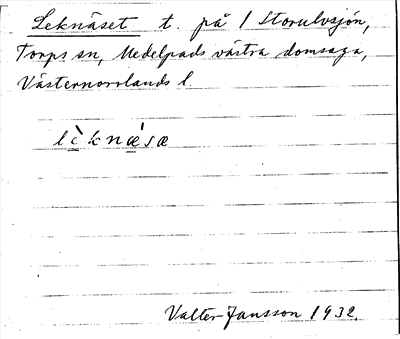 Leknäset t. på 1 Storulvsjön,
Torps sn, Medelpads västra domsaga,
Västernorrlands l
lè̱knǽ̱sæ
Valter Jansson 1932.